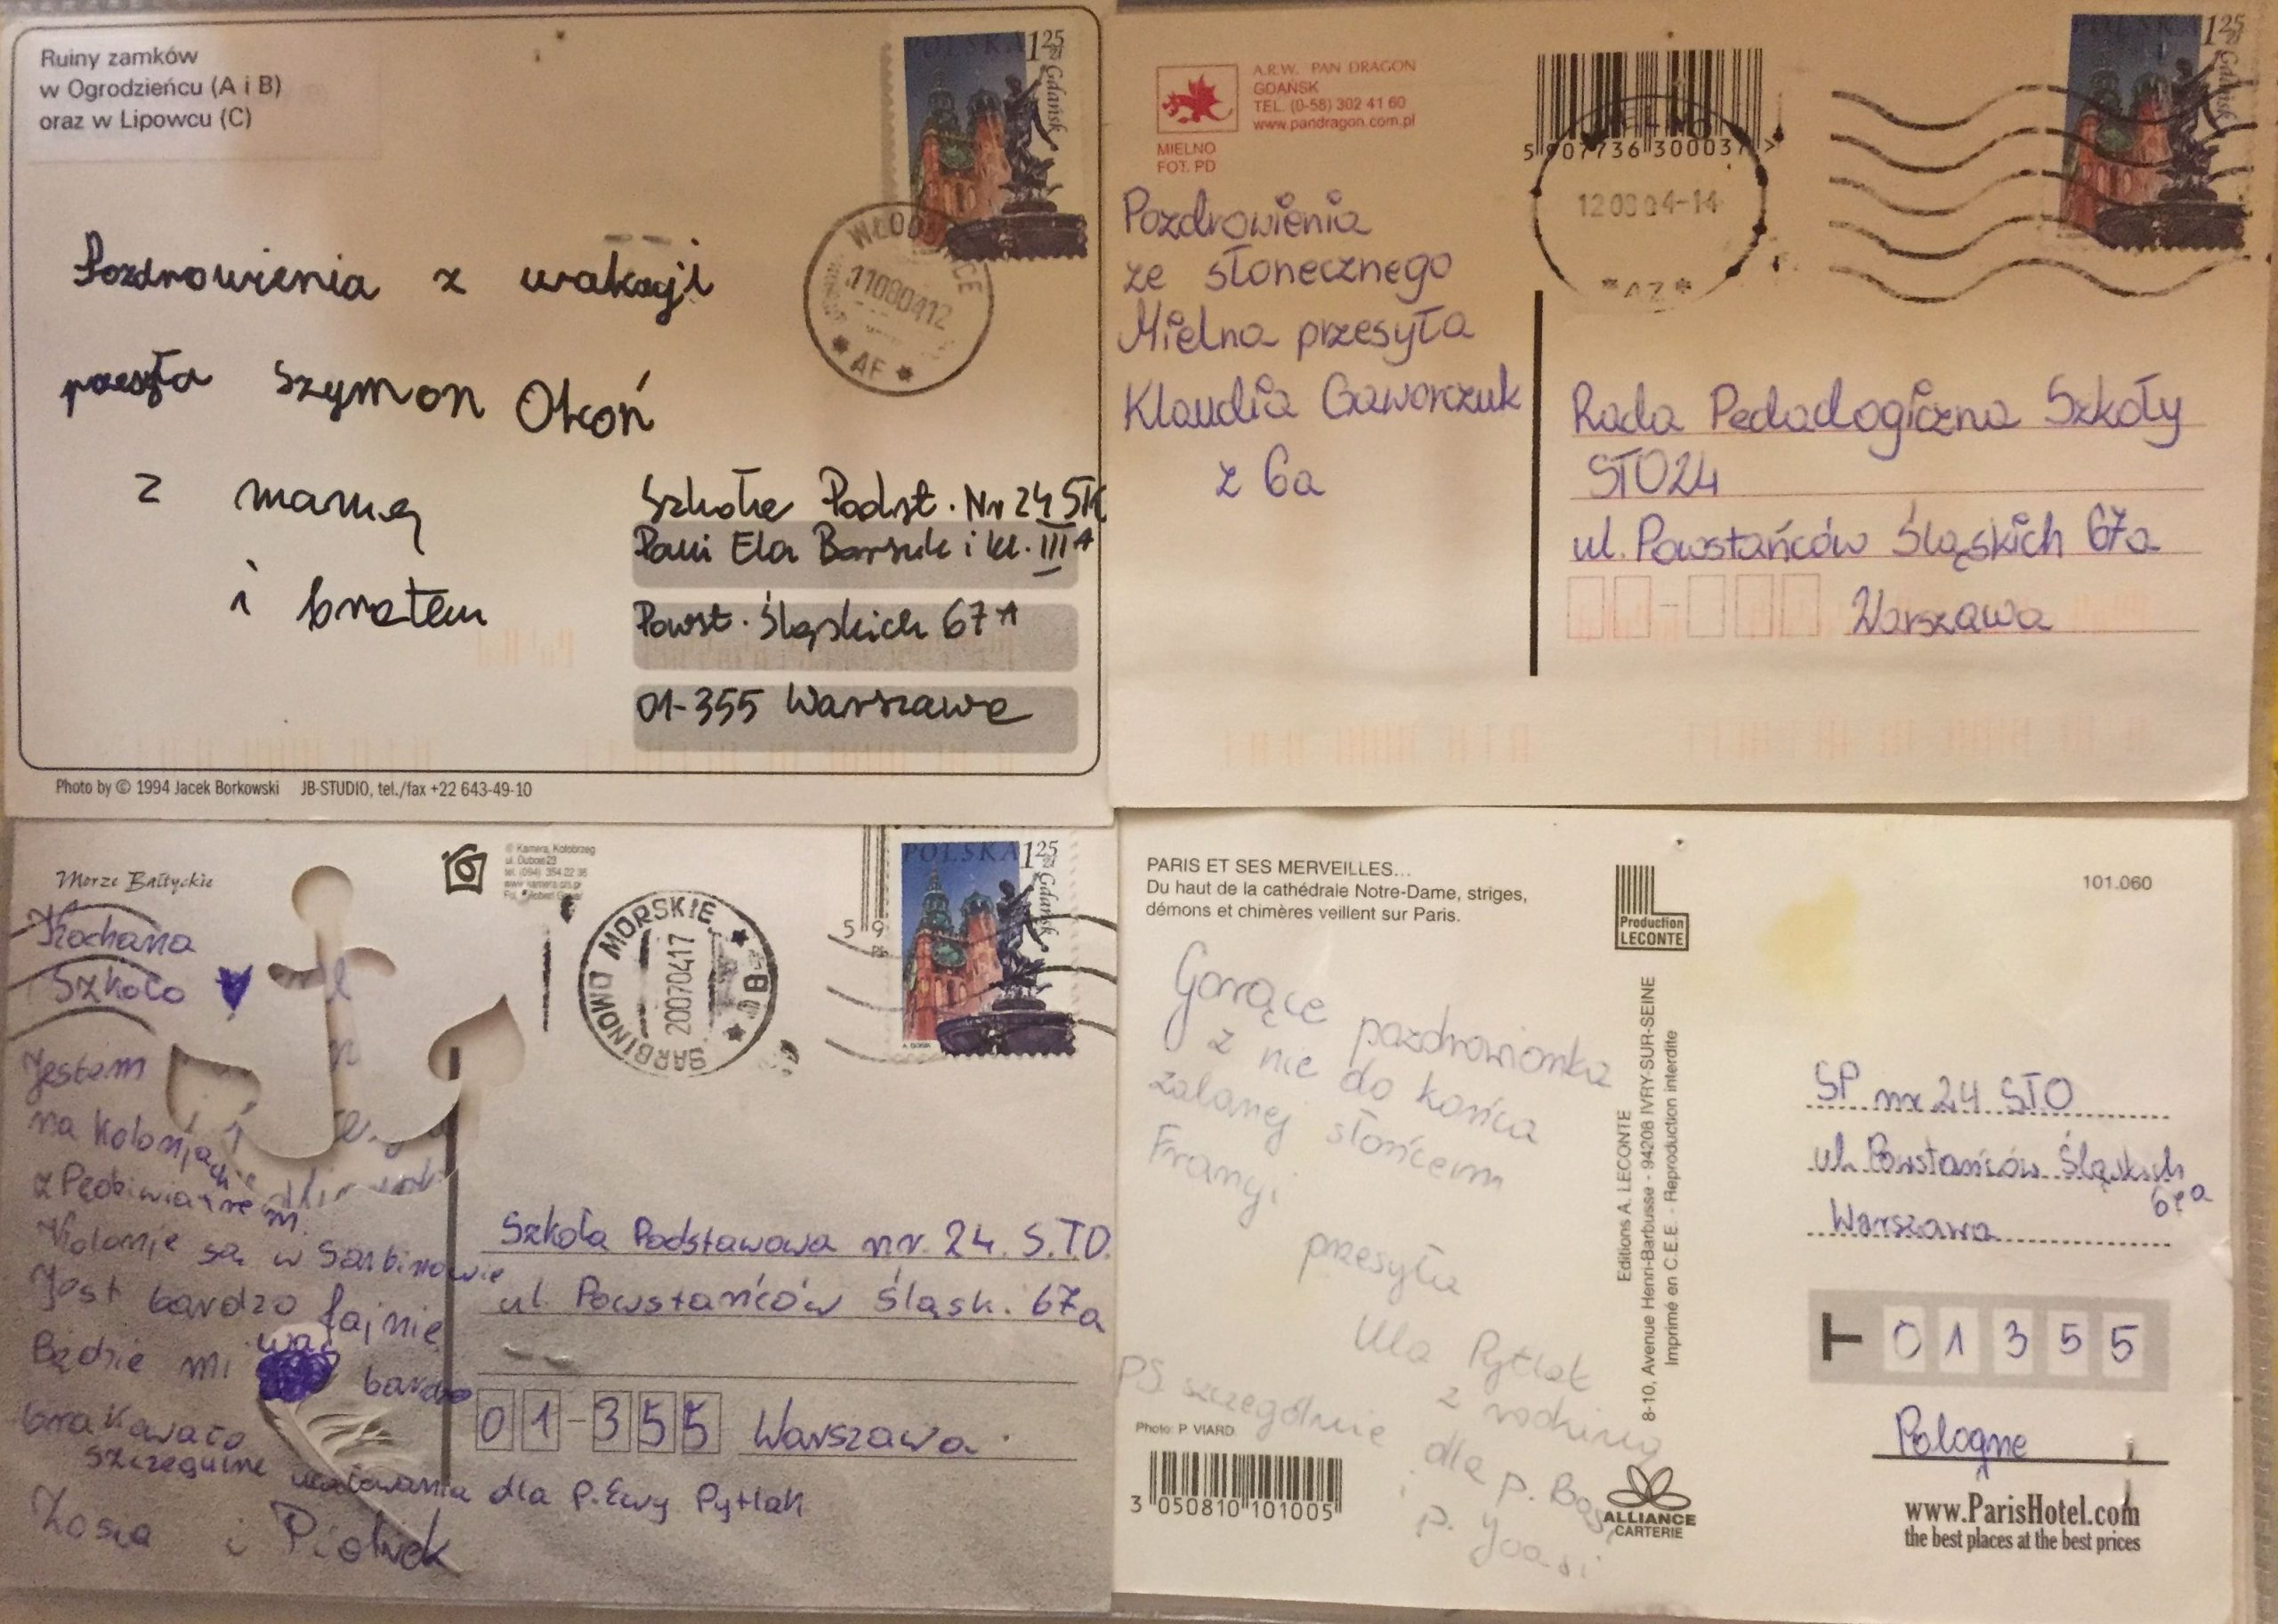 Ruiny zamków
w Ogrodzieńcu (A i B)
oraz w Lipowcu (C)
POLSKA 125 zł
Gdańsk
11080412
* AF *
Pozdrowienia z wakacji
Szymon Okoń
z mamą
i bratem
Szkoła Podst. Nr 24
Pani Ela Barsuk i kl. III A
Powst. Śląskich 67 A
01-355 Warszawa
Photo by © 1994 Jacek Borkowski JB-STUDIO, tel./fax +22 643-49-10
A.R.W. PAN DRAGON
GDAŃSK
TEL. (0-58) 302 41 60
www.pandragon.com.pl
MIELNO
FOT. PD
5 907736 300037 >
POLSKA 125 zł
Gdańsk
Pozdrowienia
ze słonecznego
Mielna przesyła
Klaudia Gaworczuk
z 6a
Rada Pedadogiczna Szkoły
STO24
ul. Powstańców Śląskich 67a
Warszawa
Morze Bałtyckie
© Kamera, Kołobrzeg
SARBINOWO MORSKIE
20070417
* B *
5 9
POLSKA 125 zł
Gdańsk
Kochana
Szkoło
Jestem
na kolonjach
Kolonie są w Sarbinowie
Jest bardzo fajnie
Będzie mi was bardzo
brakowało
dla p. Ewy Pytlak
Zosia i Piotrek
Szkoła Podstawowa nr. 24. S.T.O.
ul. Powstańców Śląsk. 67a
01-355 Warszawa
PARIS ET SES MERVEILLES...
Du haut de la cathédrale Notre-Dame, striges,
démons et chimères veillent sur Paris.
Production
LECONTE
101.060
Gorące pozdrowionka
z nie do końca
zalanej słońcem
Francji
przesyła
Ula Pytlak
z rodziną
PS szczególnie dla p. Basi
i
p. Joasi
Photo: P. VIARD
3 050810 101005
Editions A. LECONTE
8-10, Avenue Henri-Barbusse - 94206 IVRY-SUR-SEINE
Imprimé en C.E.E. - Reproduction interdite
SP nr 24 STO
ul. Powstańców Śląskich
67a
Warszawa
T 0 1 3 5 5
Pologne
ALLIANCE
CARTERIE
www.ParisHotel.com
the best places at the best prices